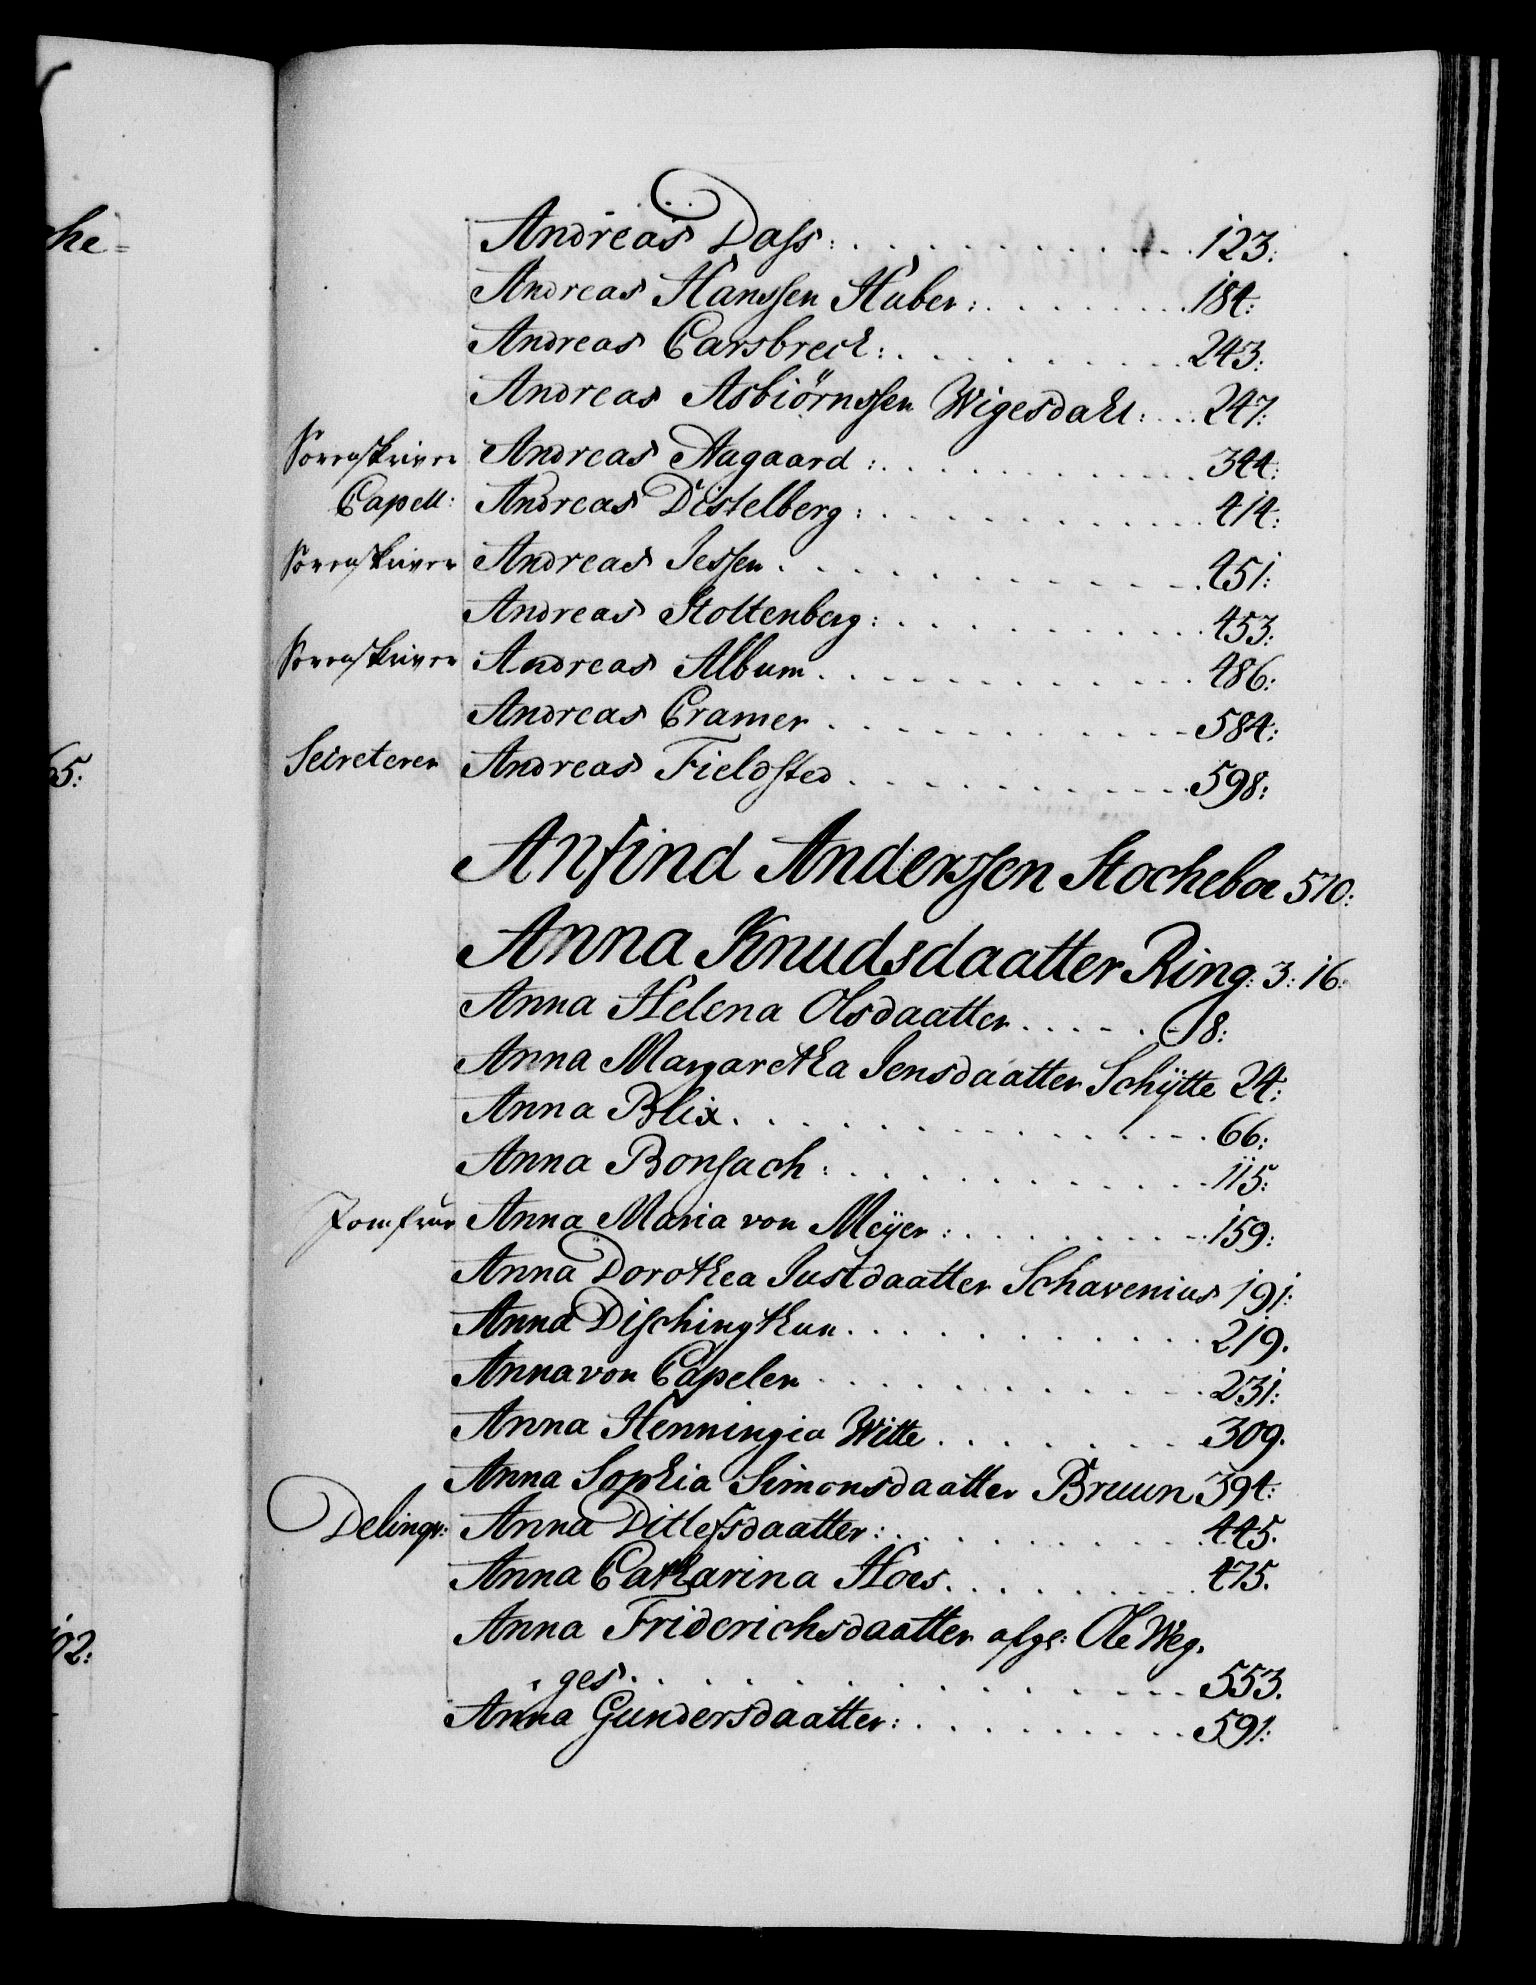 he=
65:
192:
Andreas Dass: . . . . . . . . . . 123:
Andreas Hanssen Huber: . . . . . . . 184:
Andreas Carsbreck: . . . . . . . . . 243:
Andreas Asbiörnssen Wigesdahl: . . . 247:
Sorenskriver Andreas Aagaard: . . . . . . . . . . 344:
Capell: Andreas Distelberg: . . . . . . . . . . 414:
Sorenskriver Andreas Jessen . . . . . . . . . . 451:
Andreas Stoltenberg: . . . . . . . . . 453:
Sorenskriver Andreas Album . . . . . . . . . . 486:
Andreas Cramer . . . . . . . . . . 584:
Secreterer Andreas Fieldsted . . . . . . . . . . 598:
Anfind Anderssen Stocheboe 570:
Anna Knudsdaatter Ring: 3: 16:
Anna Helena Olsdaatter . . . . . . 18:
Anna Margaretha Jensdaatter Schÿtte 24:
Anna Blix . . . . . . . . . . . . 66:
Anna Bonsach: . . . . . . . . . . 115:
Jomfrue Anna Maria von Meÿer: . . . . . . . . 159:
Anna Dorothea Justdaatter Schavenius 191:
Anna Dischingthun . . . . . . . . . 219.
Anna von Capelen . . . . . . . . . 231:
Anna Henningia Witte . . . . . . . 309.
Anna Sophia Simonsdaatter Bruun 394:
Delinqv: Anna Ditlefsdaatter: . . . . . . . . 445.
Anna Catharina Hoes . . . . . . . 475.
Anna Friderichsdaatter afg: Ole Weg-
ges . . . . . . . . . . . . 553.
Anna Gundersdaatter: . . . . . . . 591: